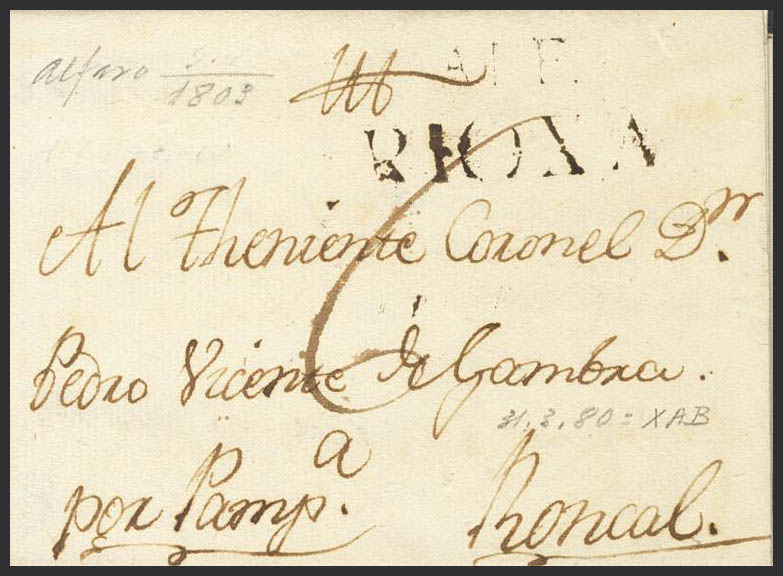 Alfaro 1803
ALF.
RIOXA
Al Theniente Coronel Dn.
Pedro Vicente de Gambra.
31.3.80 = XAB
por Pampa. Roncal.